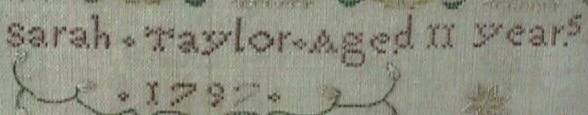 Sarah · Taylor · Aged 11 years
· 1797 ·